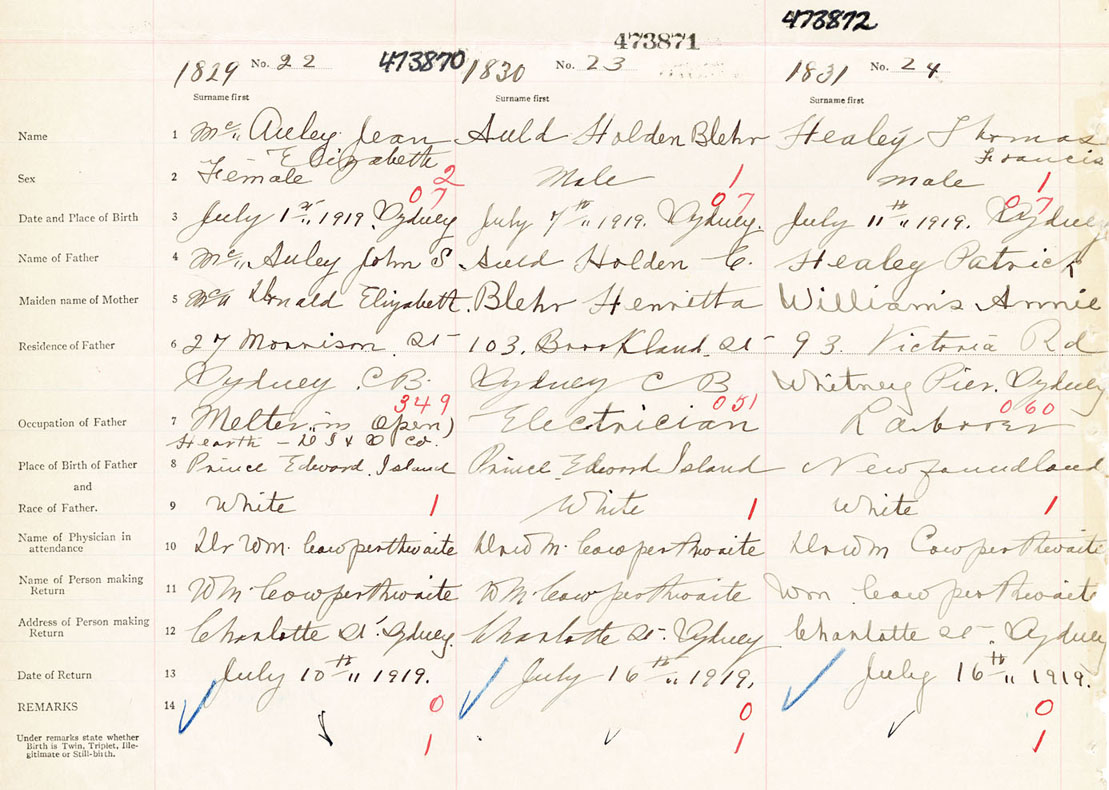 473872
473871
1829 No. 22 473870 1830 No. 23 1831 No. 24
Surname first Surname first Surname first
Name 1 Mc,, Auley Jean Auld Holden Blehr Healey Thomas
Elizabeth Francis
Sex 2 Female 2 Male 1 male 1
07 07 07
Date and Place of Birth 3 July 1st,, 1919. Sydney July 7th,, 1919. Sydney. July 11th,, 1919. Sydney
Name of Father 4 Mc,, Auley John S Auld Holden C. Healey Patrick
Maiden name of Mother 5 Mc Donald Elizabeth. Blehr Henrietta Williams Annie
Residence of Father 6 27 Morrison St 103. Brookland St 93. Victoria Rd
Sydney C.B. Sydney C B Whitney Pier. Sydney
349 051 060
Occupation of Father 7 Melter in Open) Electrician Labrorer
Hearth - D I & S Co.
Place of Birth of Father 8 Prince Edward Island Prince Edward Island Newfoundland
and
Race of Father. 9 White 1 White 1 White 1
Name of Physician in
attendance 10 Dr Wm. Cowperthwaite Dr Wm. Cowperthwaite Dr Wm Cowperthwaite
Name of Person making
Return 11 Wm. Cowperthwaite Wm. Cowperthwaite Wm Cowperthwaite
Address of Person making
Return 12 Charlotte St. Sydney. Charlotte St. Sydney Charlotte St. Sydney
Date of Return 13 July 10th,, 1919. July 16th,, 1919. July 16th,, 1919.
REMARKS 14 0 0 0
Under remarks state whether
Birth is Twin, Triplet, Ille-
gitimate or Still-birth. 1 1 1